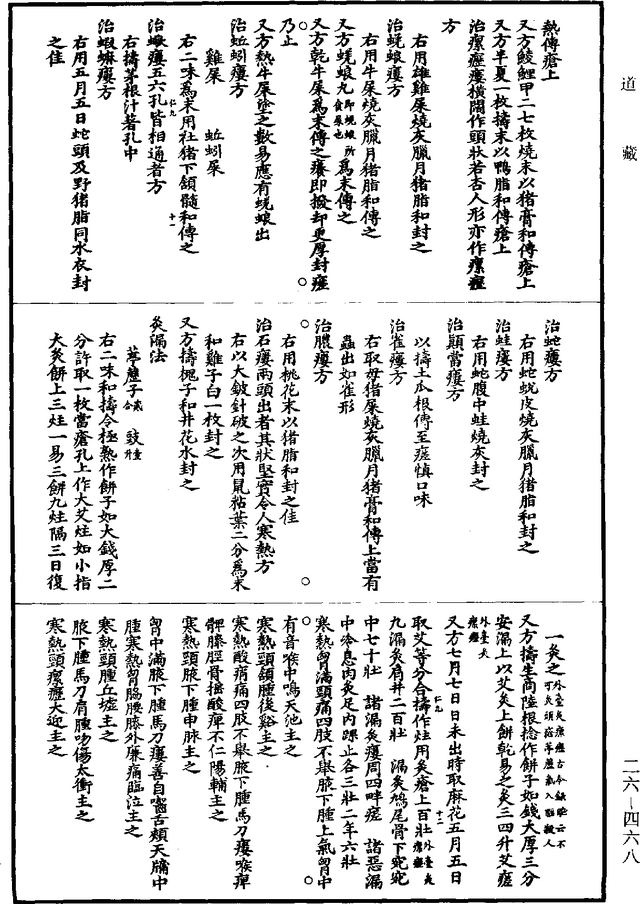 道藏
熱傅瘡上
又方鯪鯉甲二七枚燒末以猪膏和傅瘡上
又方半夏一枚擣末以鴨脂和傅瘡上
治瘰癧瘻橫闊作頭狀若杏人形亦作瘰癧
方
右用雄雞屎燒灰臘月猪脂和封之
治蜣蜋瘻方
右用牛屎燒灰臘月猪脂和傅之
又方蜣蜋九枚即蜣蜋所食屎也爲末傅之
又方乾牛屎爲末傅之癢即撥却更厚封瘥
乃止
又方熱牛屎塗之數易應有蜣蜋出
治蚯蚓瘻方
雞屎 蚯蚓屎
右二味爲末用社猪下頷髓和傅之
仁九 十一
治蝎瘻五六孔皆相通者方
右擣茅根汁著孔中
治蝦蟇瘻方
右用五月五日蛇頭及野猪脂同水衣封
之佳
治蛇瘻方
右用蛇蛻皮燒灰臘月猪脂和封之
治蛙瘻方
右用蛇腹中蛙燒灰封之
治顛當瘻方
以擣土瓜根傅至瘥慎口味
治雀瘻方
右取母猪屎燒灰臘月猪膏和傅上當有
蟲出如雀形
治膿瘻方
右用桃花末以猪脂和封之佳
治石瘻兩頭出者其狀堅實令人寒熱方
右以大鈹針破之次用鼠粘葉二分爲末
和雞子白一枚封之
又方擣槐子和井花水封之
灸漏法
葶藶子二合 豉一升
右二味和擣令極熟作餅子如大錢厚二
分許取一枚當瘡孔上作大艾炷如小指
大灸餅上三炷一易三餅九炷隔三日復
一灸之外臺灸瘰癧古今錄驗云不可灸頭瘡葶藶氣入腦殺人
又方擣生商陸根捻作餅子如錢大厚三分
安漏上以艾灸上餅乾易之灸三四升艾瘥
外臺灸瘰癧
又方七月七日日未出時取麻花五月五日
仁九 十二
取艾等分合擣作炷用灸瘡上百壯外臺灸瘰癧
九漏灸肩井二百壯 漏灸鳩尾骨下宛宛
中七十壯 諸漏灸瘻周四畔瘥 諸惡漏
中冷息肉灸足內踝上各三壯二年六壯
寒熱胷滿頸痛四肢不舉腋下腫上氣胷中
有音喉中鳴天池主之
寒熱頸頷腫後谿主之
寒熱酸痟痛四肢不舉腋下腫馬刀瘻喉痺
髀膝脛骨搖酸痺不仁陽輔主之
寒熱頸腋下腫申脉主之
胷中滿腋下腫馬刀瘻善自嚙舌頰天牖中
腫寒熱胷脇腰膝外廉痛臨泣主之
寒熱頸腫丘墟主之
腋下腫馬刀肩腫吻傷太衝主之
寒熱頸瘰癧大迎主之
二六—四六八